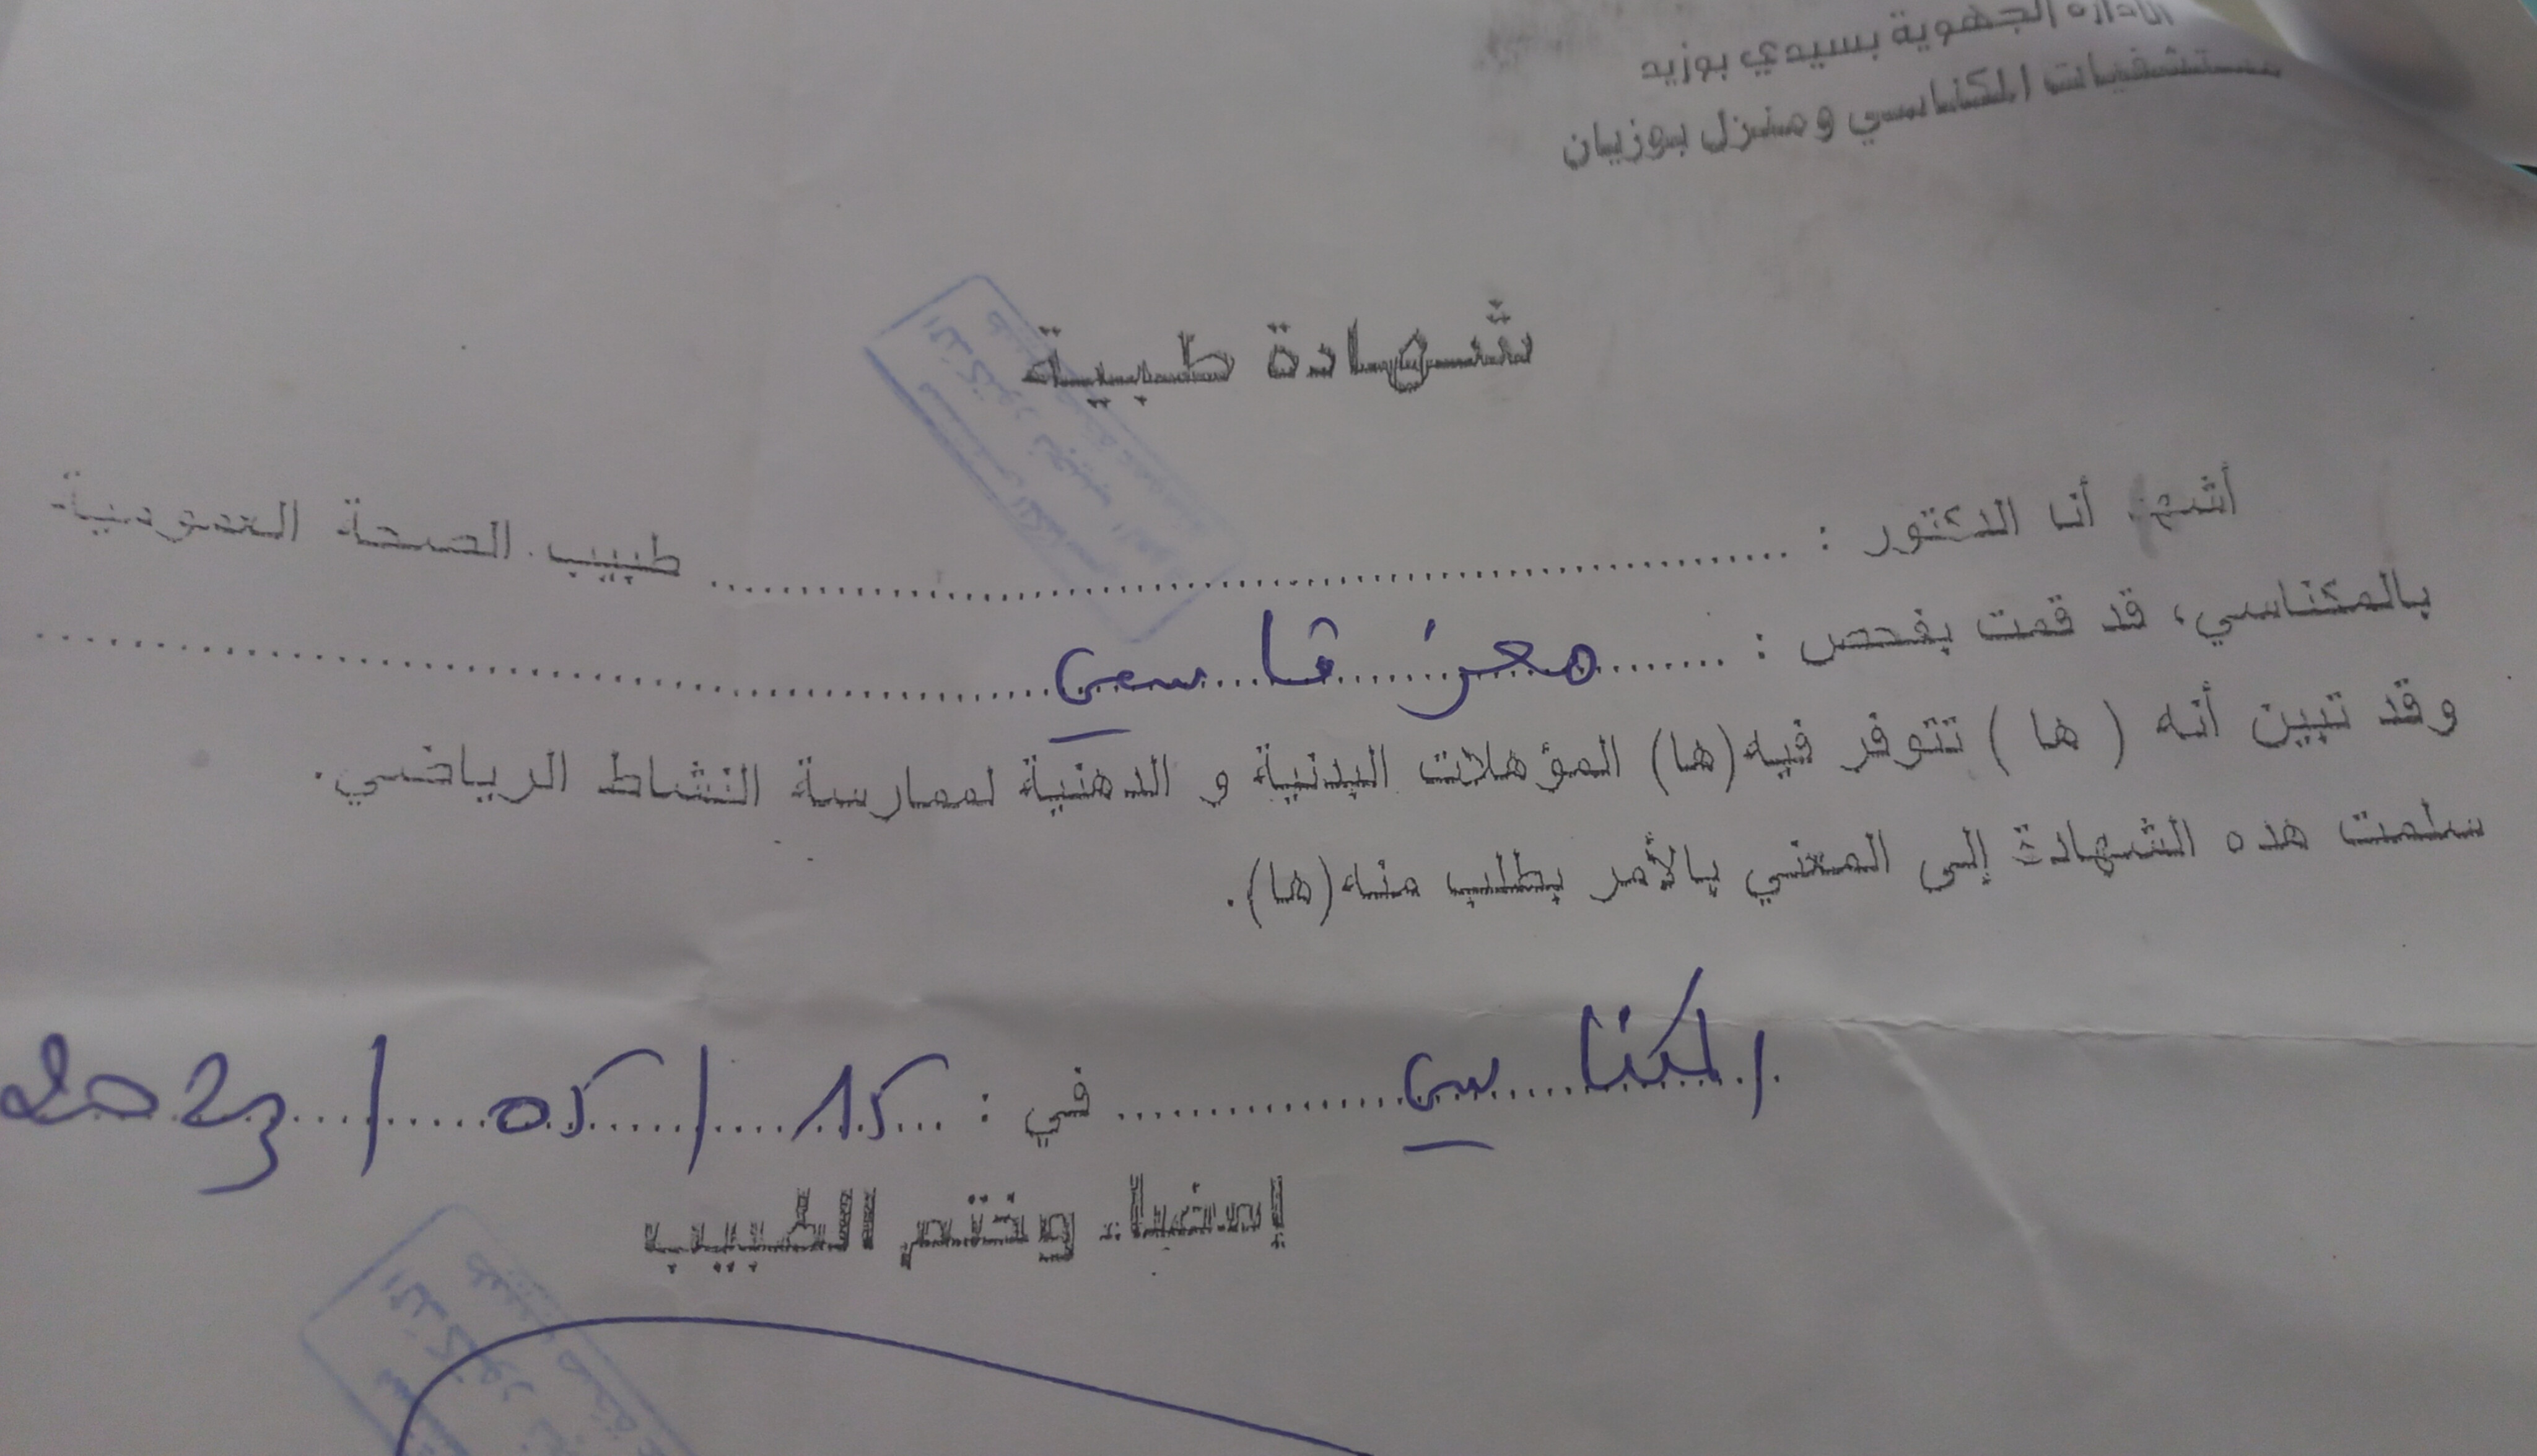 الادارة الجهوية بسيدي بوزيد
مستشفيات المكناسي ومنزل بوزيان
شهادة طبية
أشهد أنا الدكتور : .......... طبيب الصحة العمومية
بالمكناسي، قد قمت بفحص : ..... معز قاسمي ..........
وقد تبين أنه ( ها ) تتوفر فيه (ها) المؤهلات البدنية و الدهنية لممارسة النشاط الرياضي.
سلمت هده الشهادة إلى المعني بالأمر بطلب منه (ها).
المكناسي .......... في : 15 / 05 / 2023
إمضاء وختم الطبيب